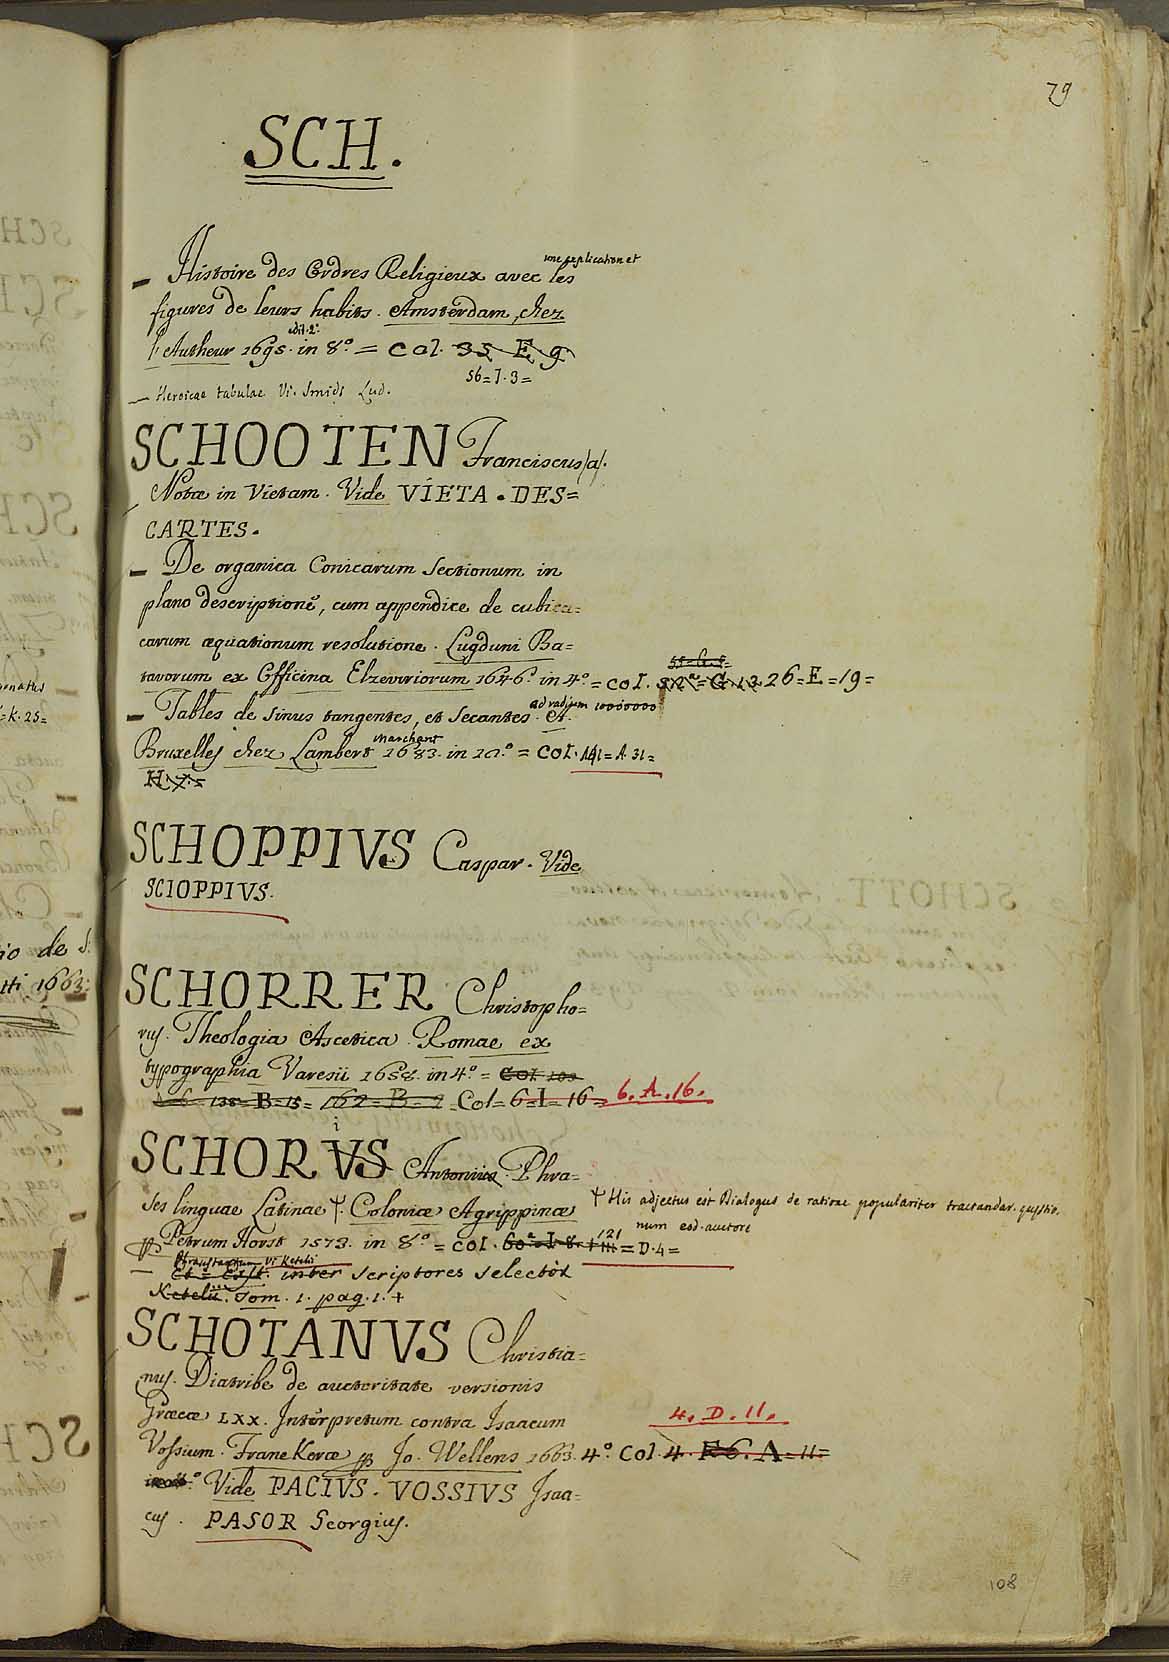 79
SCH.
– Histoire des Ordres Religieux avec une explication et les
figures de leurs habits. Amsterdam, chez
l'Autheur 1695. edit. 2ª in 8.º = Col. 35 E 9
56 = I. 3 =
– Heroicae tabulae Vi. Smids Lud.
SCHOOTEN Franciscus (a).
Notæ in Vietam. Vide VIETA. DES=
CARTES.
– De organica Conicarum Sectionum in
plano descriptionē, cum appendice de cubica=
carum æquationum resolutione. Lugduni Ba=
tavorum ex Officina Elzeviriorum 1646. in 4.º = Col. 26 = E = 19 =
– Tables de sinus tangentes, et secantes. ad radium 10000000
Bruxelles chez Lambert Marchant 1683. in 12.º = Col. 141 = A. 31 =
H. 7. 5
SCHOPPIVS Caspar. Vide
SCIOPPIVS.
SCHORRER Christopho=
rus. Theologia Ascetica. Romae ex
typographia Varesii 1658. in 4.º = Col. 109
138 = B = 15 = 162 = B = 2 = Col = 6 = I = 16 = 6. A. 16.
SCHORVS i Antonius. Phra=
ses linguae Latinae †. Coloniæ Agrippinæ
† His adjectus est Dialogus de ratione populariter tractandar. qustio
num eod. auctore
pp Petrum Horst 1573. in 8.º = Col. 60ª I. 8. 121 = D. 4 =
Phrasjastrum Vi Ketelii
Et = Exst. inter scriptores selectos
Ketelii. Tom. 1. pag. 1. +
SCHOTANVS Christia=
nus. Diatribe de auctoritate versionis
Græcæ LXX. Interpretum contra Isaacum
4. D. 11.
Vossium. Franekeræ pp Jo. Wellens 1663. 4.º Col. 4. F 6. A = 11 =
Vide PACIVS. VOSSIVS Isaa=
cus. PASOR Georgius.
108